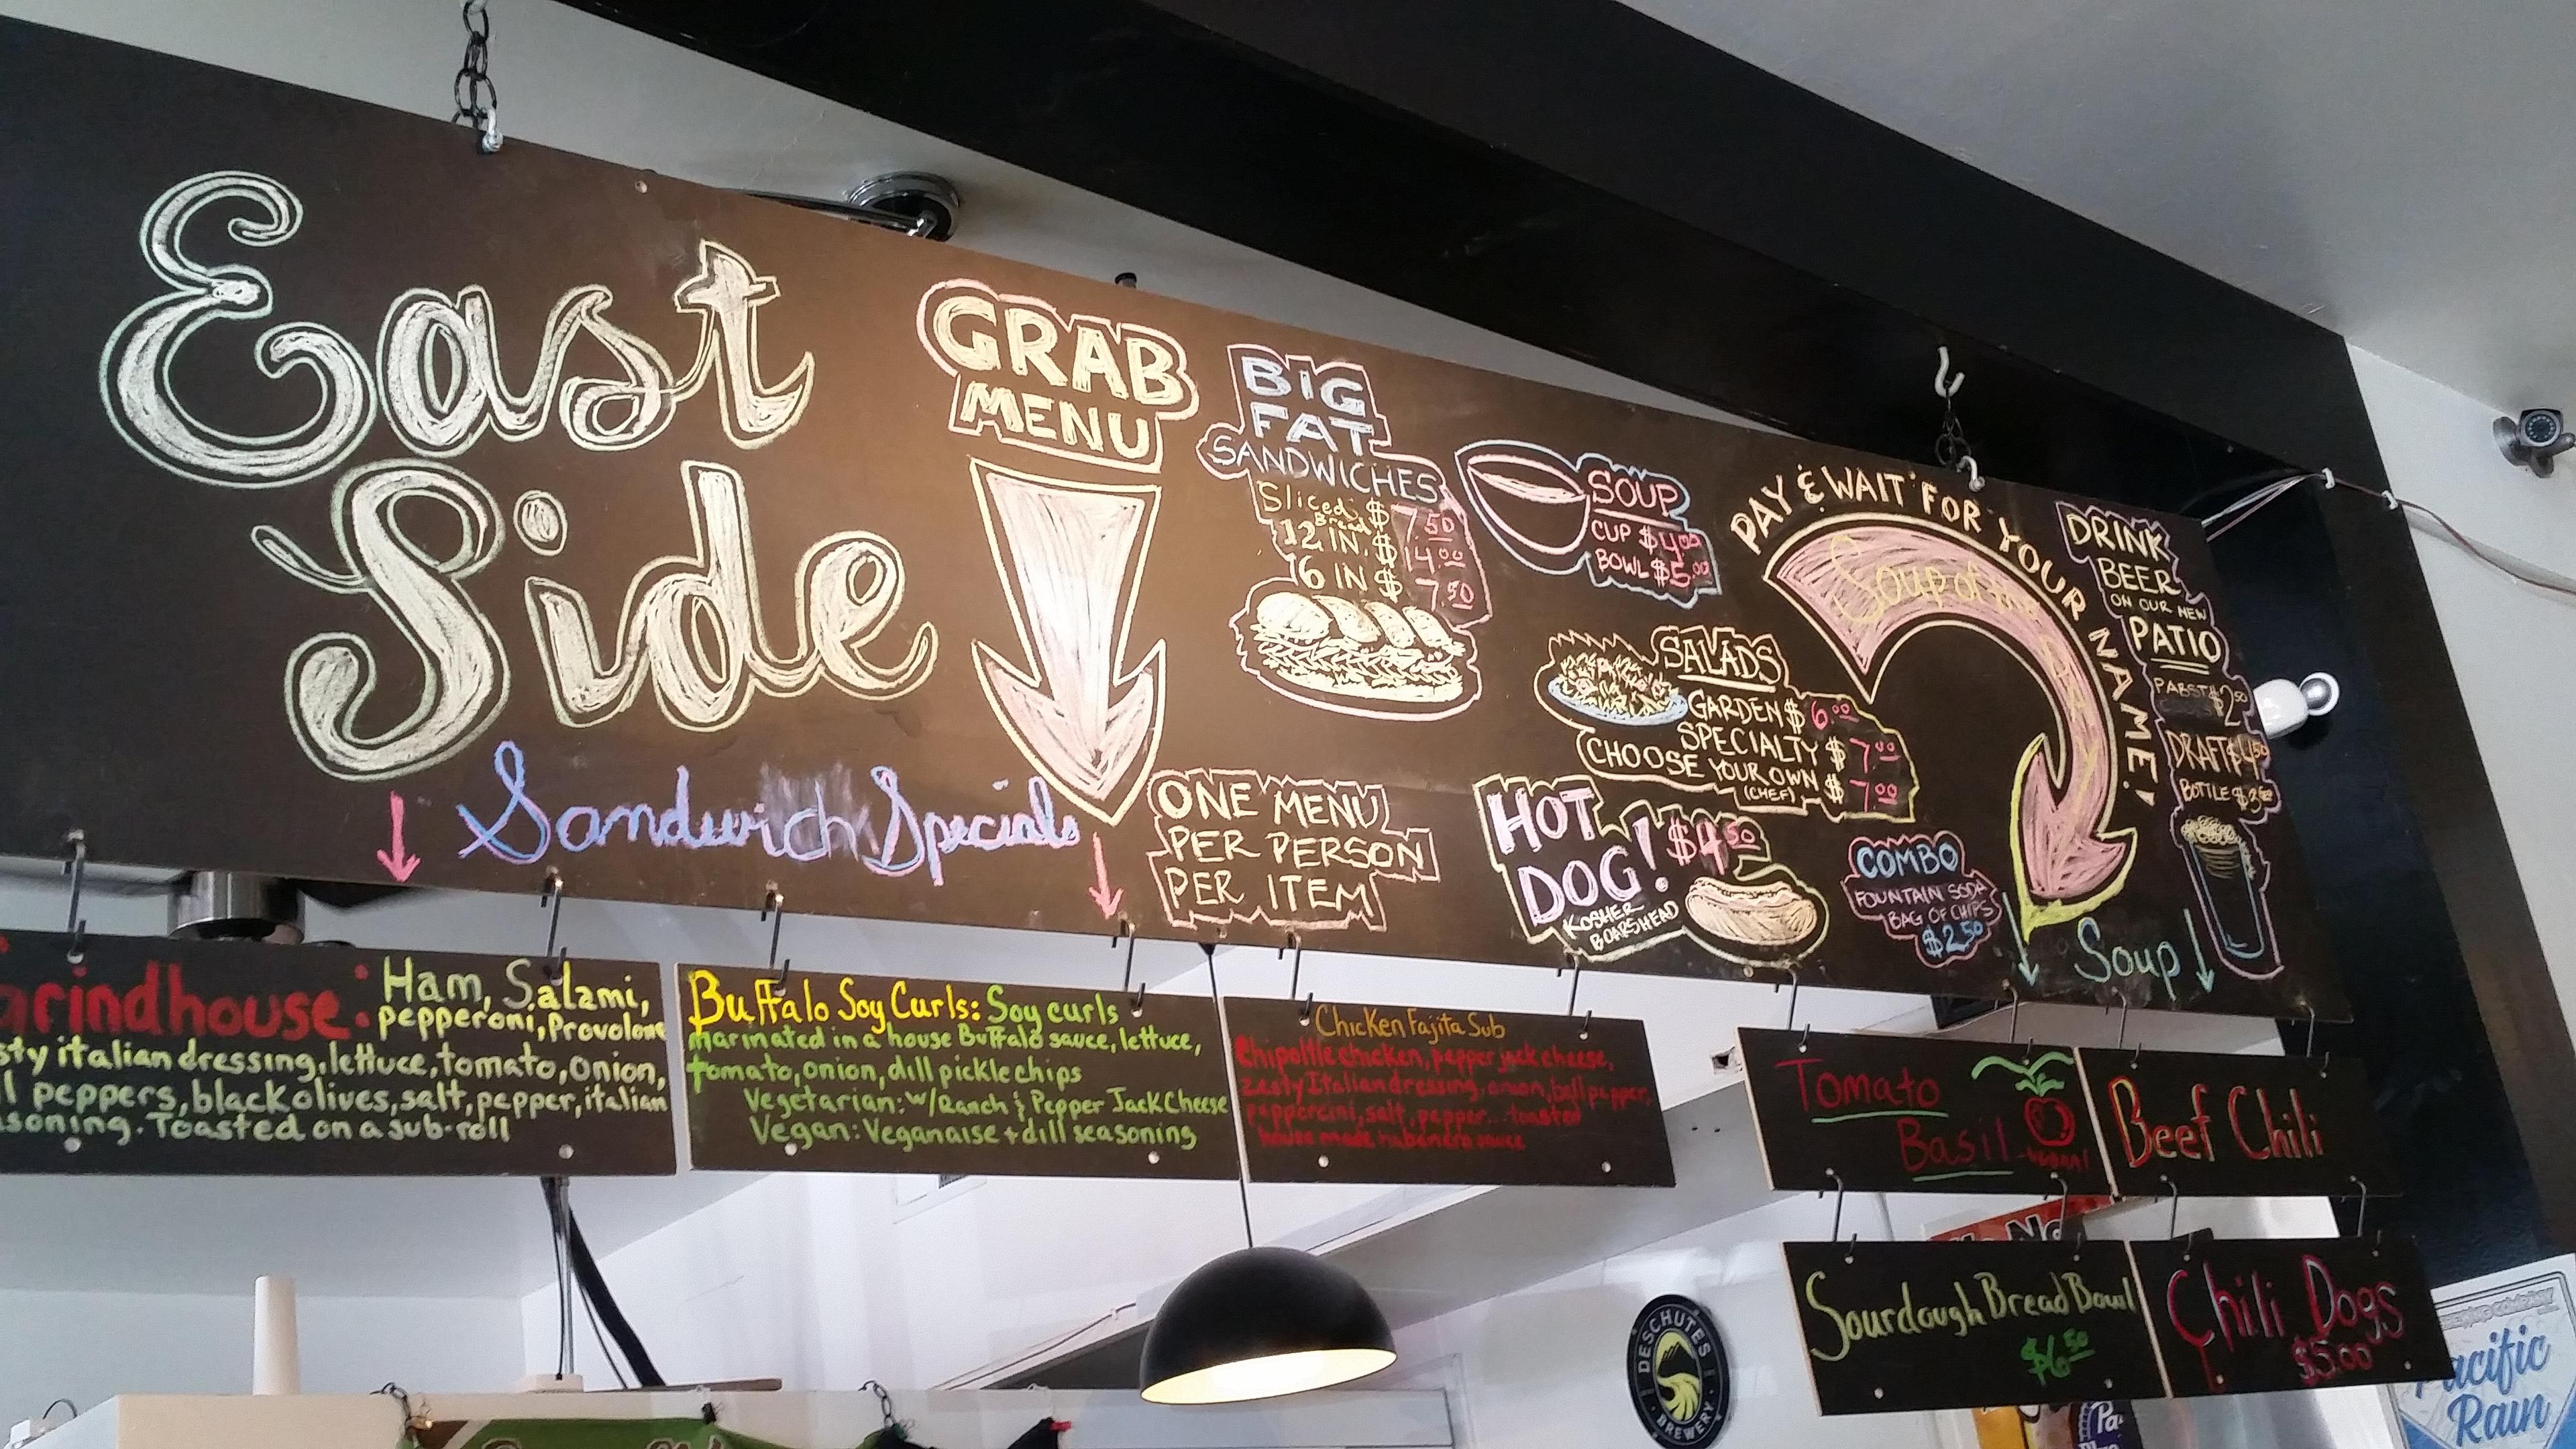 East
Side
GRAB
MENU
BIG
FAT
SANDWICHES
Sliced Bread $7.50
12 IN. $14.00
6 IN $7.50
SOUP
CUP $4.00
BOWL $5.00
SALADS
GARDEN $6.00
SPECIALTY $7.00
CHOOSE YOUR OWN $7.00
(CHEF)
PAY & WAIT FOR YOUR NAME!
Soup of the
DRINK
BEER
ON OUR NEW
PATIO
PABST $2.50
DRAFT $4.50
BOTTLE $3
Sandwich Specials
ONE MENU
PER PERSON
PER ITEM
HOT
DOG! $4.50
KOSHER
BOARSHEAD
COMBO
FOUNTAIN SODA
BAG OF CHIPS
$2.50
Soup
rindhouse: Ham, Salami,
pepperoni, Provolone
sty italian dressing, lettuce, tomato, onion,
l peppers, black olives, salt, pepper, italian
soning. Toasted on a sub-roll
Buffalo Soy Curls: Soy curls
marinated in a house Buffalo sauce, lettuce,
tomato, onion, dill pickle chips
Vegetarian: w/Ranch & Pepper Jack Cheese
Vegan: Veganaise + dill seasoning
Chicken Fajita Sub
Chipoltle chicken, pepper jack cheese,
zesty Italian dressing, onion, bell pepper,
pepporcini, salt, pepper... toasted
house made habanero sauce
Tomato
Basil -vegan!
Beef Chili
Sourdough Bread Bowl
$6.50
Chili Dogs
$5.00
DESCHUTES
BREWERY
acific
Rain